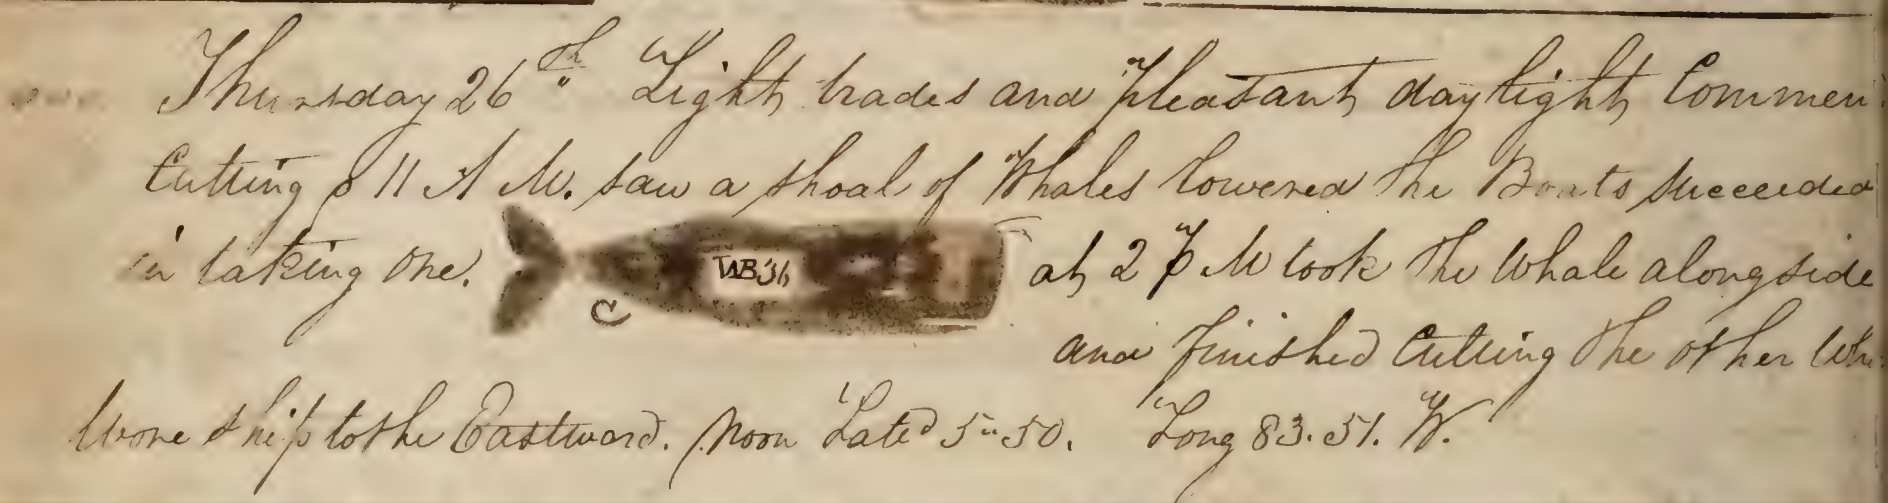 Thursday 26th Light trades and pleasant daylight Commen
Cutting 11 A M. saw a shoal of Whales lowered the Boats succeeded
in taking one. WB36 at 2 P M took the Whale alongside
and finished Cutting the other Wh
Wore ship to the Eastward. Noon Lated 5"50. Long 83.51. W.